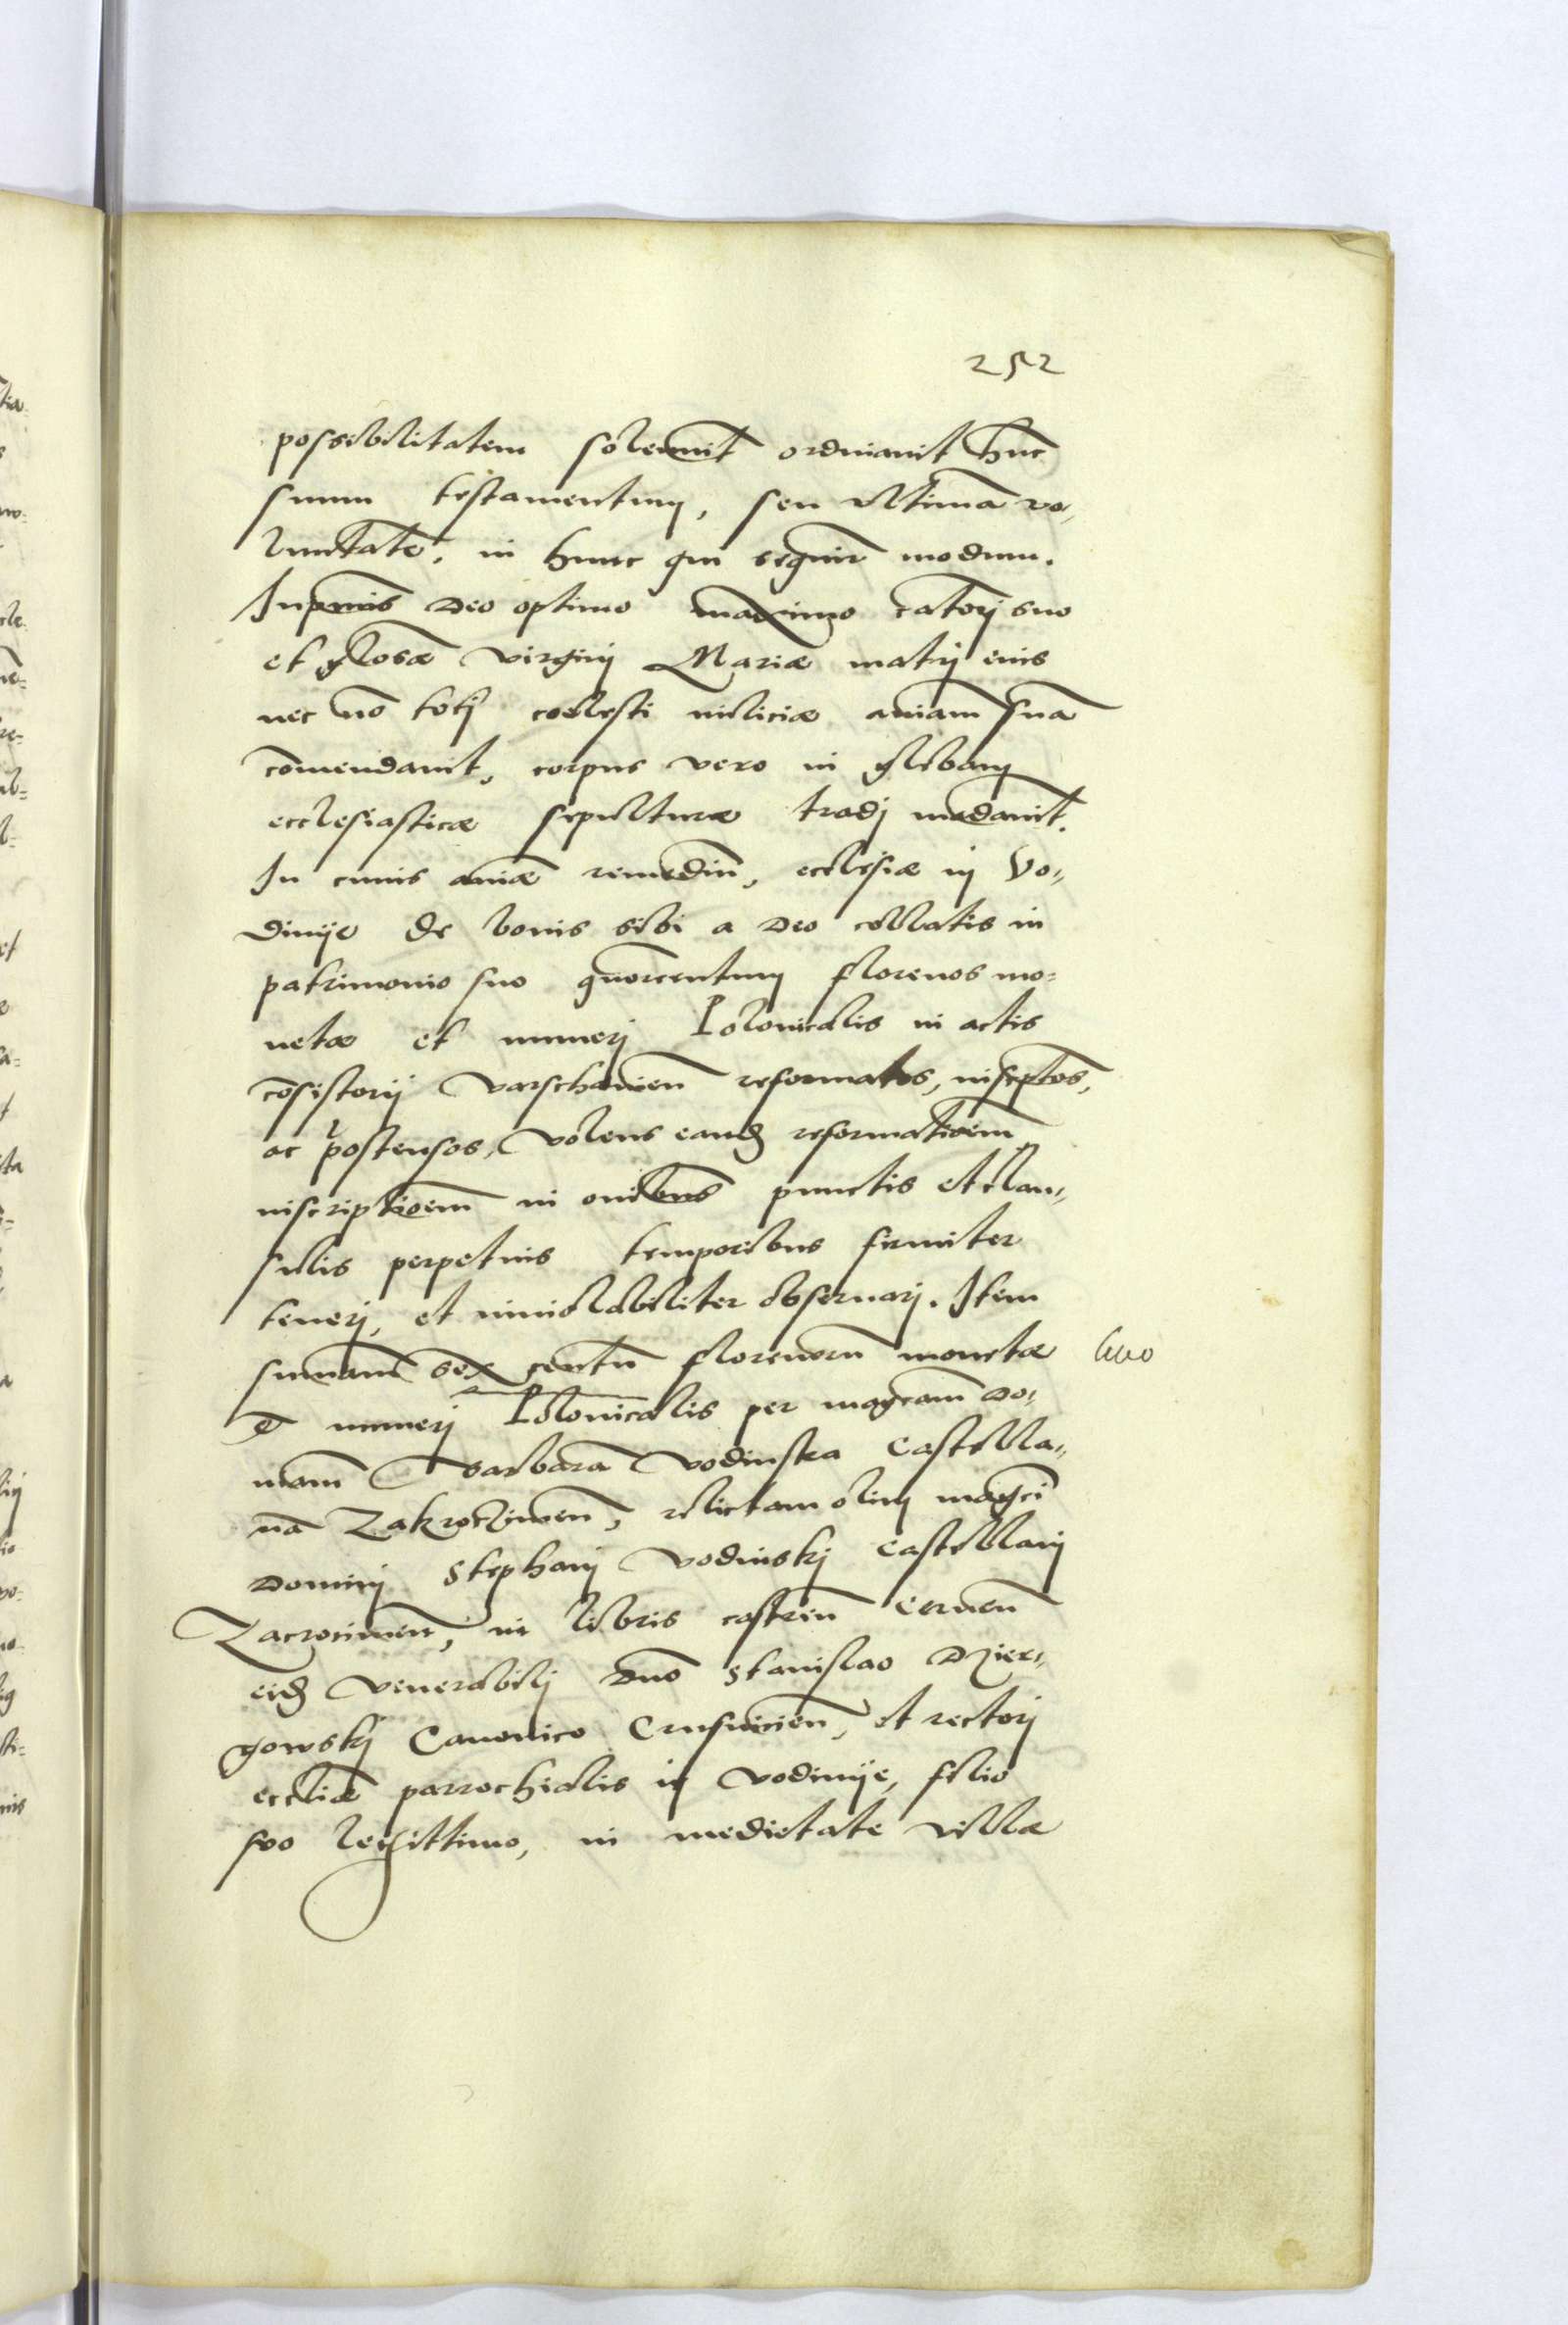 252
possibilitatem solemnit ordinavit hũc
suum testamentum, seu ultimã vo,
luntatẽ, in hunc qui sequir̃ modum.
Inprimis Deo optimo maximo c̃atorj suo
et glosæ virginj Mariæ matrj eius
nec nõ totj coelesti miliciæ aniam̃ suã
cõmendavit, corpus vero in glebam
ecclesiasticæ sepulturæ tradj mãdavit.
In cuius aniæ remediũ, ecclesiæ in Vo,
dinije de bonis sibi a Deo collatis in
patrimonio suo quorcentum florenos mo=
netæ et numerj Polonicalis in actis
cõsistorij varschavieñ reformatos, inscptos,
ac postensos, volens eandẽ reformatioem̃
inscriptioem̃ in onibus punctis et clau,
sulis perpetuis temporibus firmiter
tenerj, et inviolabiliter observarj. Item
sumam̃ sex centũ florenorũ monetæ
600
et numerj Polonicalis per magcam̃ Do,
nam̃ Barbarã Vodinska Castella,
nã Zakroczimeñ, relictam olim magcĩ
Dominj Stephanj Vodinskj Castellanj
Zacrocimeñ, in libris castreñ Cerneñ
eidẽ Venerabilj Dnõ Stanislao Dzier,
gowskj Canonico Crusvicieñ, et rectorj
eccliæ parrochialis in Vodinije, filio
suo legittimo, in medietate villæ